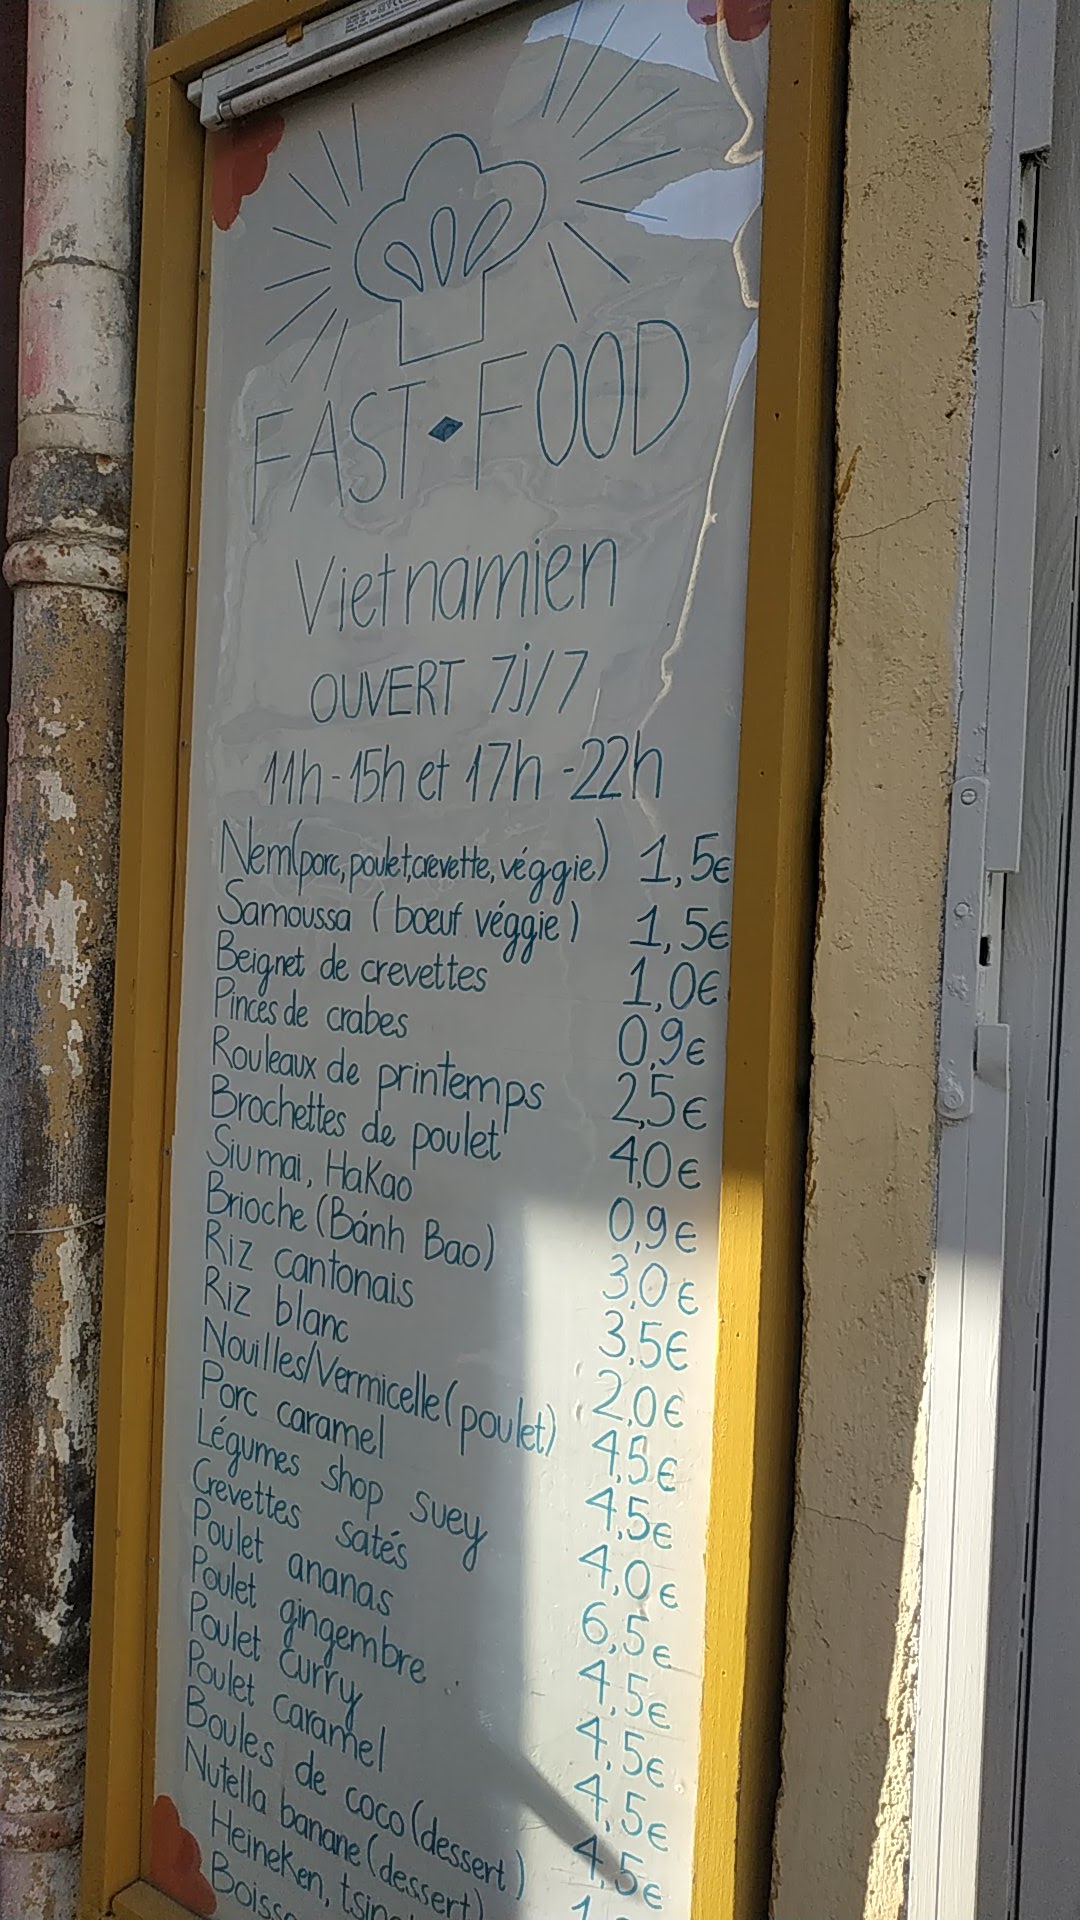 FAST FOOD
Vietnamien
OUVERT 7j/7
11h-15h et 17h-22h
Nem(porc, poulet, crevette, véggie) 1,5€
Samoussa (boeuf véggie) 1,5€
Beignet de crevettes 1,0€
Pinces de crabes 0,9€
Rouleaux de printemps 2,5€
Brochettes de poulet 4,0€
Siu mai, HaKao 0,9€
Brioche (Bánh Bao) 3,0€
Riz cantonais 3,5€
Riz blanc 2,0€
Nouilles/Vermicelle (poulet) 4,5€
Porc caramel 4,5€
Légumes shop suey 4,0€
Crevettes satés 6,5€
Poulet ananas 4,5€
Poulet gingembre 4,5€
Poulet curry 4,5€
Poulet caramel 4,5€
Boules de coco (dessert)
Nutella banane (dessert)
Heineken,